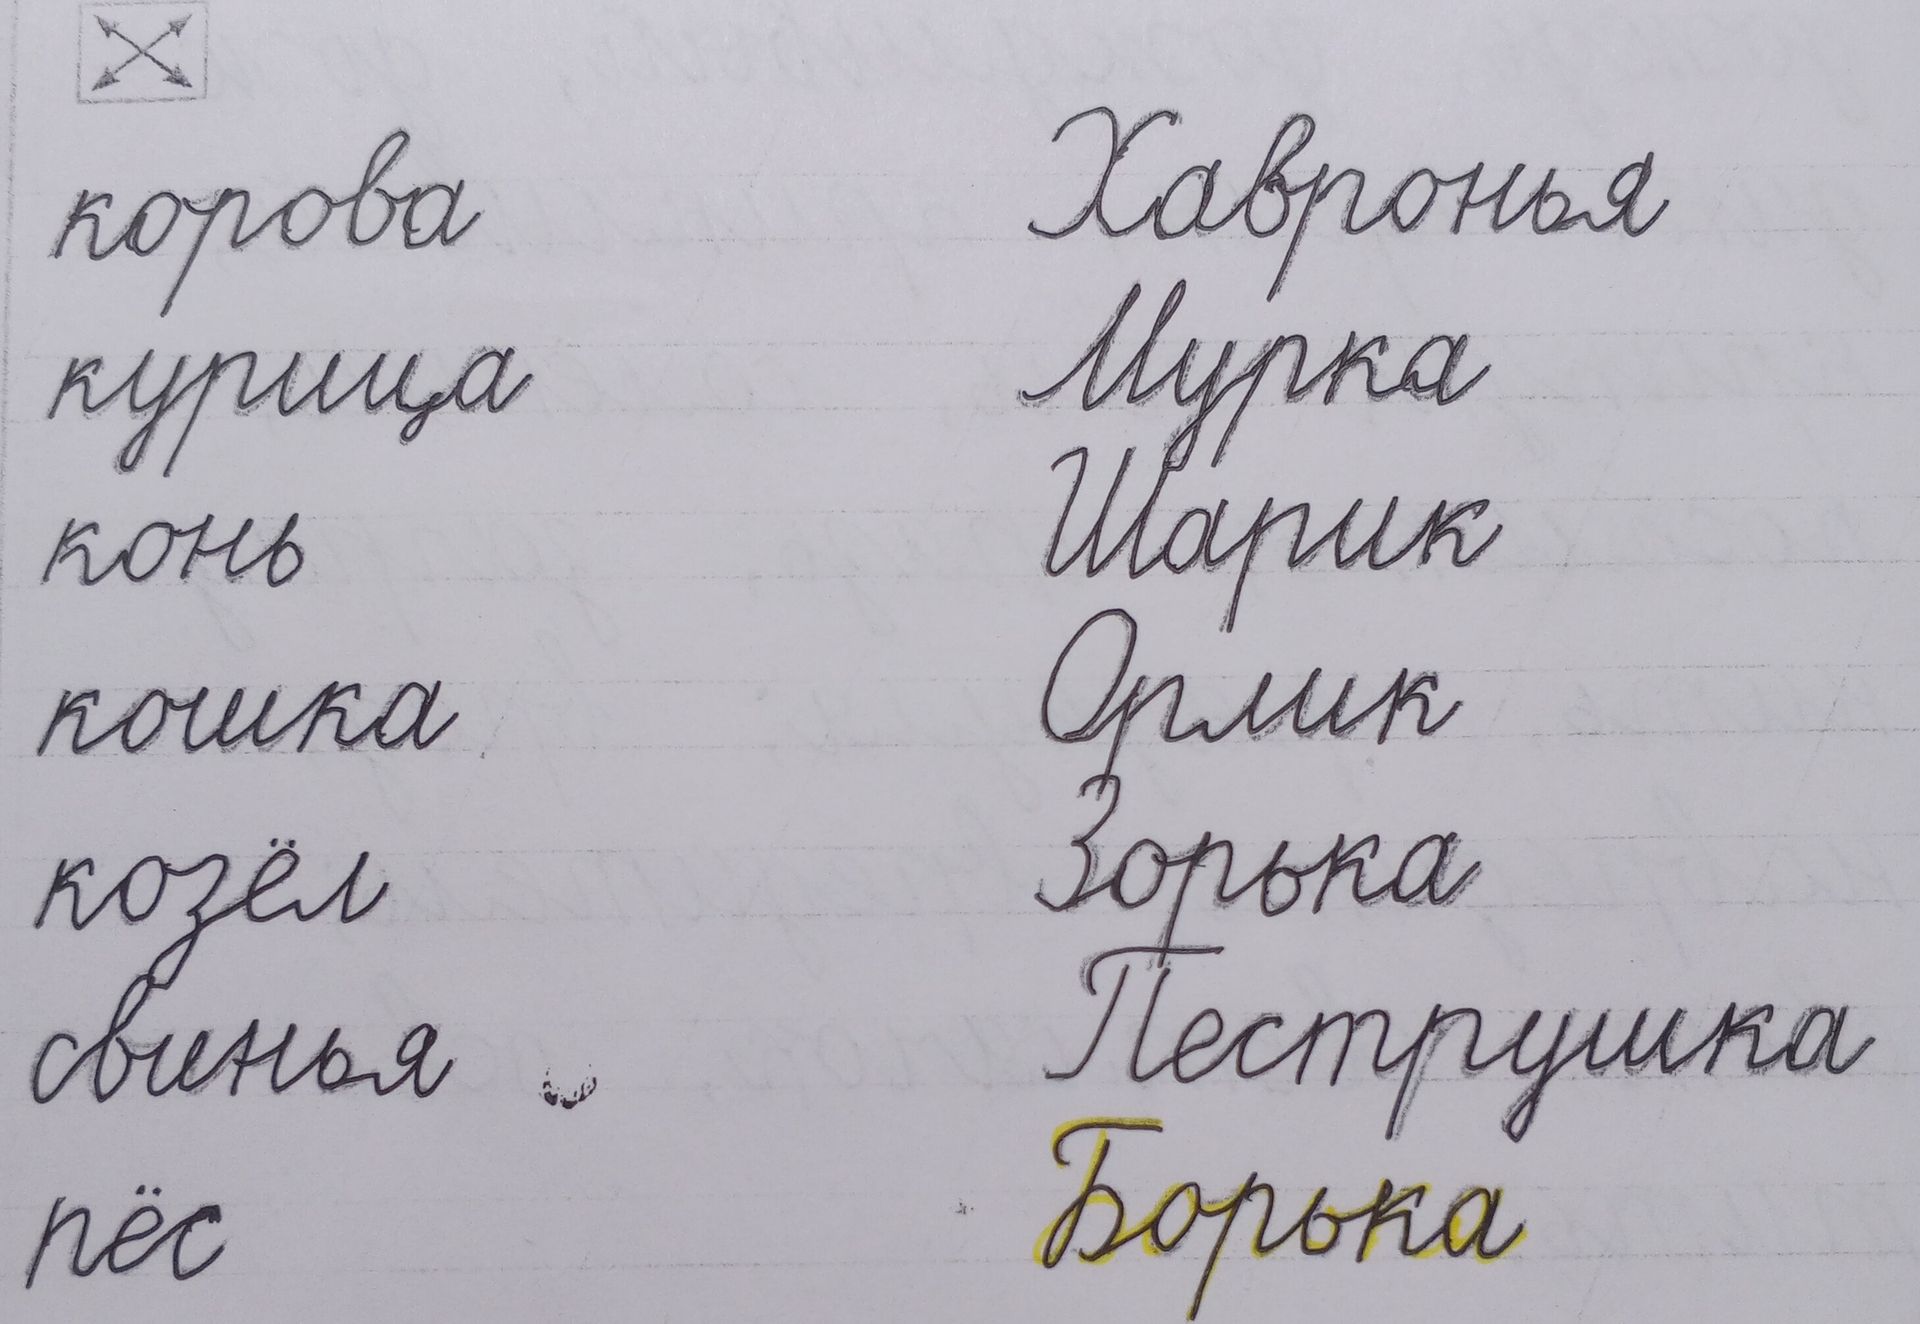 корова Хавронья
курица Мурка
конь Шарик
кошка Орлик
козёл Зорька
свинья Пеструшка
пёс Борька